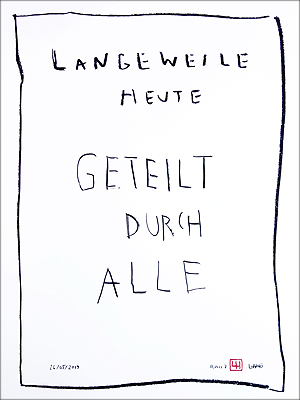 LANGEWEILE
HEUTE
GETEILT
DURCH
ALLE